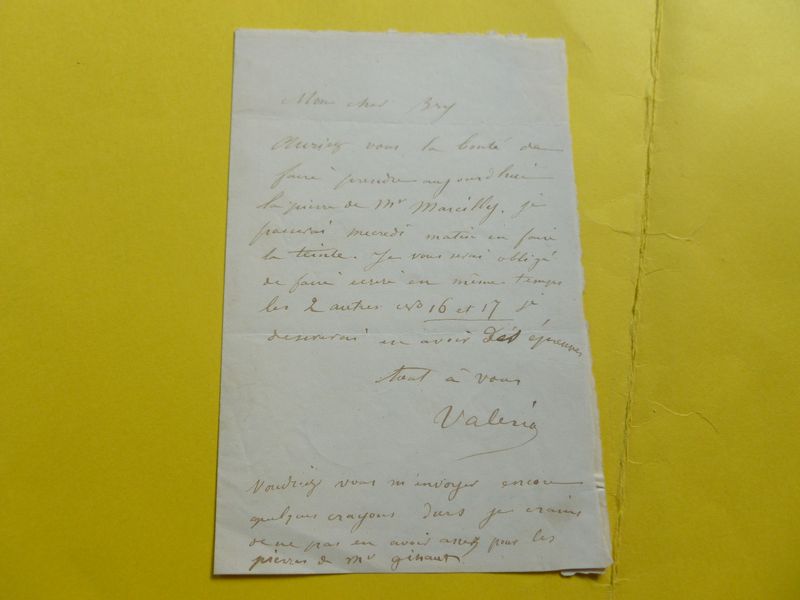 Mon cher Bry
Auriez vous la bonté de
faire prendre aujourdhui
la pierre de Mr Marcilly. je
passerai mecredi matin en faire
la teinte. Je vous serai obligé
de faire
en même temps
les 2 autres no 16 et 17 je
desirerai en avoir Des épreuves
tout à vous
Valerio
Voudriez vous m'envoyer encore
quelques crayons durs je crains
de ne pas en avoir assez pour les
pierres de Mr